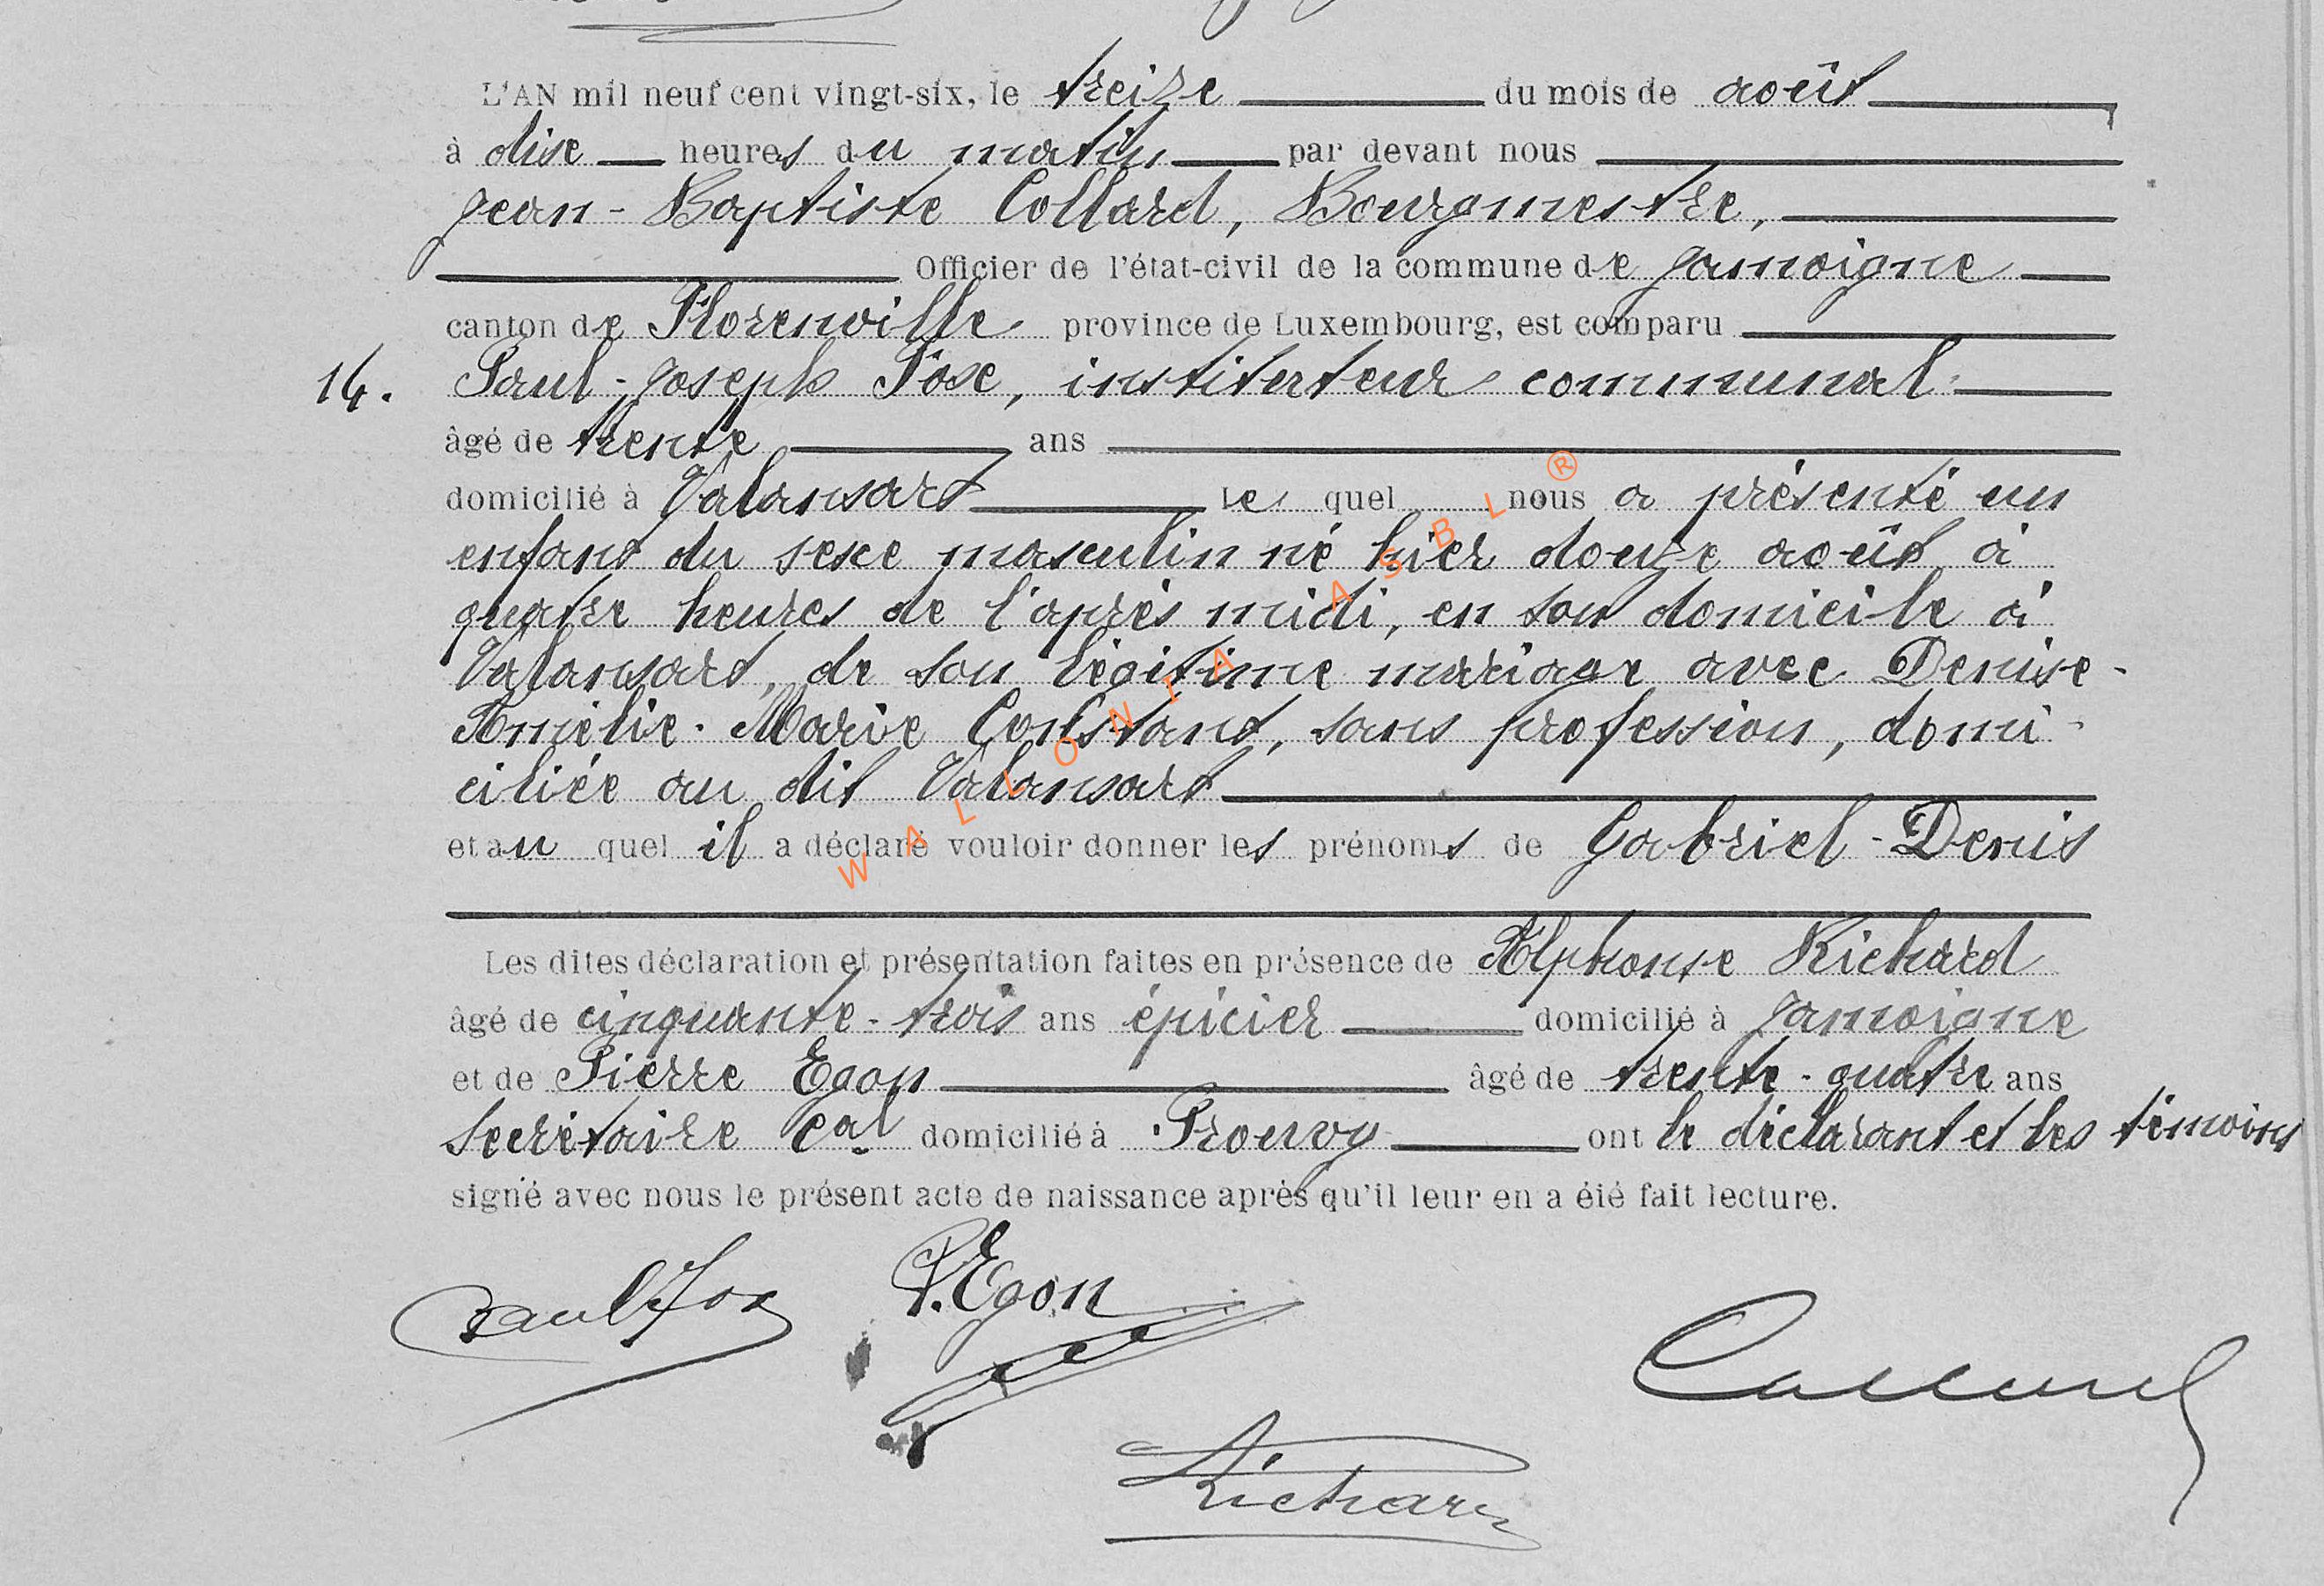 L'AN mil neuf cent vingt-six, le treize du mois de août
à dix heures du matin par devant nous
Jean-Baptiste Collard, Bourgmestre,
Officier de l'état-civil de la commune de Jamoigne
canton de Florenville province de Luxembourg, est comparu
14. Paul-Joseph Fox, instituteur communal
âgé de trente ans
domicilié à Valansart lequel nous a présenté un
enfant du sexe masculin né hier douze août à
quatre heures de l'après midi, en son domicile à
Valansart, de son légitime mariage avec Denise-
Amélie-Marie Constant, sans profession, domi-
ciliée au dit Valansart
et au quel il a déclaré vouloir donner les prénoms de Gabriel-Denis
Les dites déclaration et présentation faites en présence de Alphonse Richard
âgé de cinquante-trois ans épicier domicilié à Jamoigne
et de Pierre Egon âgé de trente-quatre ans
Secrétaire cal domicilié à Prouvy ont le déclarant et les témoins
signé avec nous le présent acte de naissance après qu'il leur en a été fait lecture.
Paul Fox P. Egon
Collard
Richard
WALLONIA ASBL ®